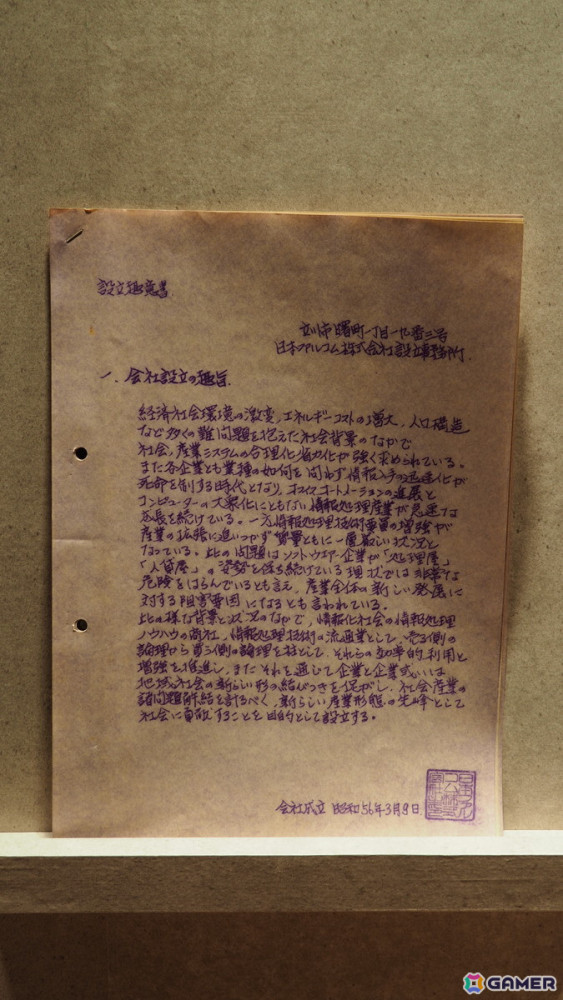 設立趣意書
立川市曙町一丁目一九番三号
日本ファルコム株式会社設立事務所.
一、会社設立の趣旨.
経済社会環境の激変,エネルギーコストの増大,人口構造
など多くの難問題を抱えた社会背景のなかで
社会,産業システムの合理化省力化が強く求められている。
また各企業とも業種の如何を問わず情報入手の迅速化が
死命を制する時代となり,オフィスオートメーションの進展と
コンピューターの大衆化にともない情報処理産業が急速な
成長を続けている。一方情報処理技術要員の増強が
産業の拡張に追いつかず質量ともに一層厳しい状況と
なっている。此の問題はソフトウエアー企業が「処理屋」
「人貸屋」の姿勢を保ち続けている現状では非常な
危険をはらんでいるとも言え,産業全体の新しい発展に
対する阻害要因になるとも言われている。
此の様な背景と状況のなかで,情報化社会の情報処理
ノウハウの商社,情報処理技術の流通業として,売る側の
論理から買う側の論理を柱として,それらの効率的利用と
増強を推進し,またそれを通じて企業と企業或いは
地域社会の新らしい形の結びつきを促がし,社会産業の
諸問題解結を計るべく,新らしい産業形態の先峰として
社会に貢献することを目的として設立する。
会社成立 昭和56年3月9日.
GAMER